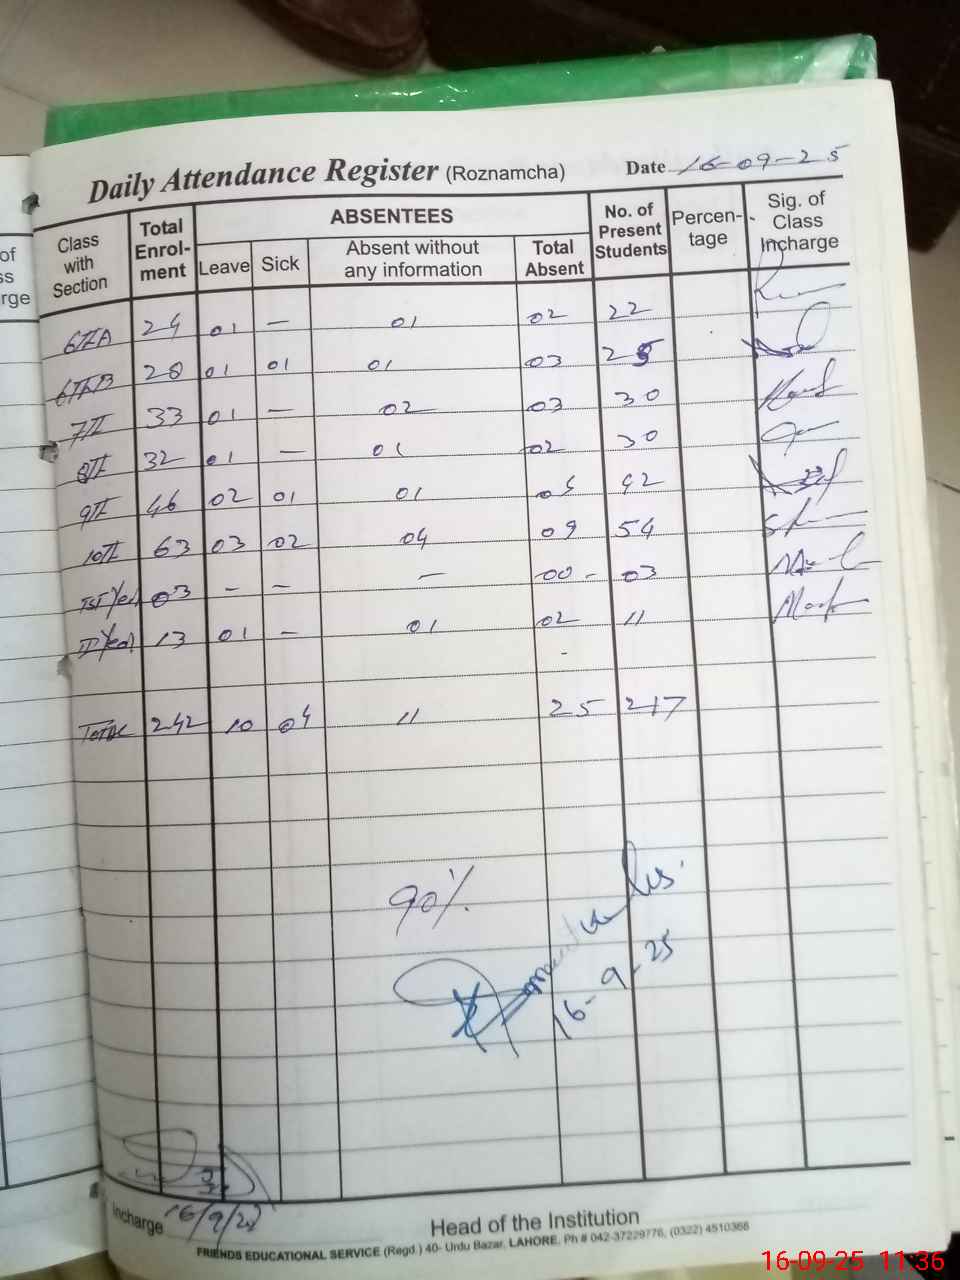 Daily Attendance Register (Roznamcha) Date 16-09-25
Class with Section Total Enrol-ment ABSENTEES Leave Sick Absent without any information Total Absent No. of Present Students Percen-tage Sig. of Class Incharge
6th A 24 01 — 01 02 22
6th B 28 01 01 01 03 25
7th 33 01 — 02 03 30
8th 32 01 — 01 02 30
9th 46 02 01 01 04 42
10th 63 03 02 04 09 54
1st Year 03 - - — 00 - 03
II Year 13 01 - 01 02 11
-
Total 242 10 04 11 25 217
90%
16-9-25
Incharge 16/9/25
Head of the Institution
FRIENDS EDUCATIONAL SERVICE (Regd.) 40- Urdu Bazar, LAHORE. Ph # 042-37229776, (0322) 4510366
16-09-25 11:36
of
ss
rge